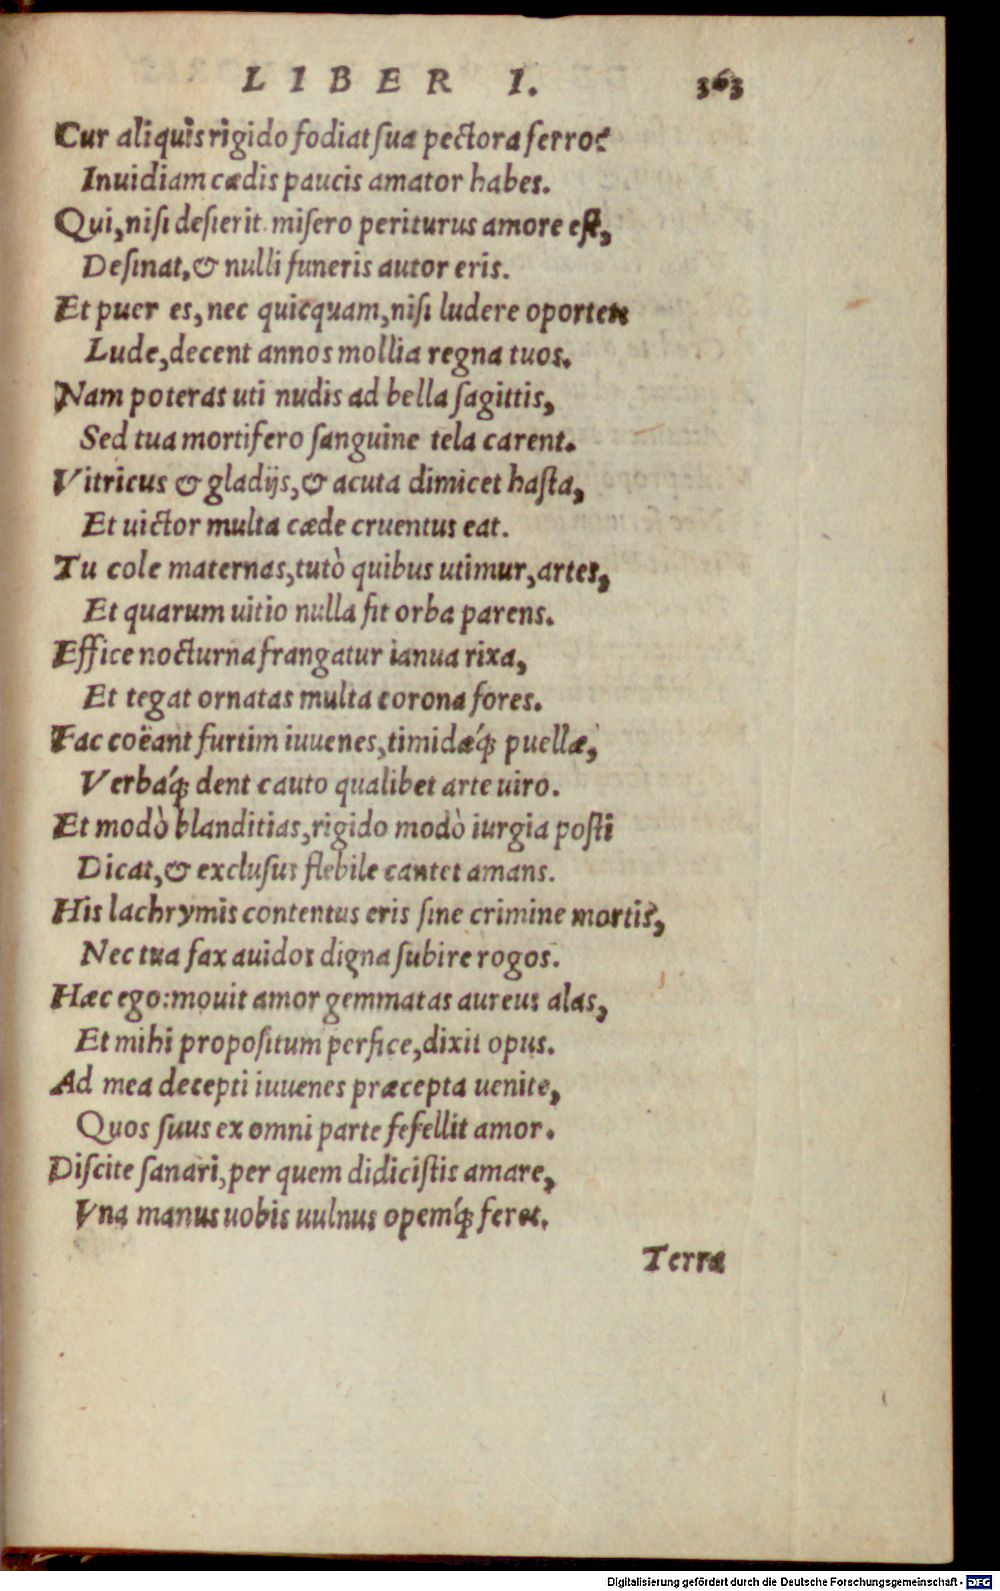 LIBER I. 363
Cur aliquis rigido fodiat sua pectora ferro?
Inuidiam cædis paucis amator habes.
Qui, nisi desierit misero periturus amore est,
Desinat, & nulli funeris autor eris.
Et puer es, nec quicquam, nisi ludere oportet:
Lude, decent annos mollia regna tuos.
Nam poteras uti nudis ad bella sagittis,
Sed tua mortifero sanguine tela carent.
Vitricus & gladijs, & acuta dimicet hasta,
Et uictor multa cæde cruentus eat.
Tu cole maternas, tutò quibus utimur, artes,
Et quarum uitio nulla fit orba parens.
Effice nocturna frangatur ianua rixa,
Et tegat ornatas multa corona fores.
Fac coëant furtim iuuenes, timidæq́; puellæ,
Verbáq́; dent cauto qualibet arte uiro.
Et modò blanditias, rigido modò iurgia posti
Dicat, & exclusus flebile cantet amans.
His lachrymis contentus eris sine crimine mortis,
Nec tua fax auidos digna subire rogos.
Hæc ego: mouit amor gemmatas aureus alas,
Et mihi propositum perfice, dixit opus.
Ad mea decepti iuuenes præcepta uenite,
Quos suus ex omni parte fefellit amor.
Discite sanari, per quem didicistis amare,
Vna manus uobis uulnus opemq́; feret.
Terra
Digitalisierung gefördert durch die Deutsche Forschungsgemeinschaft - DFG